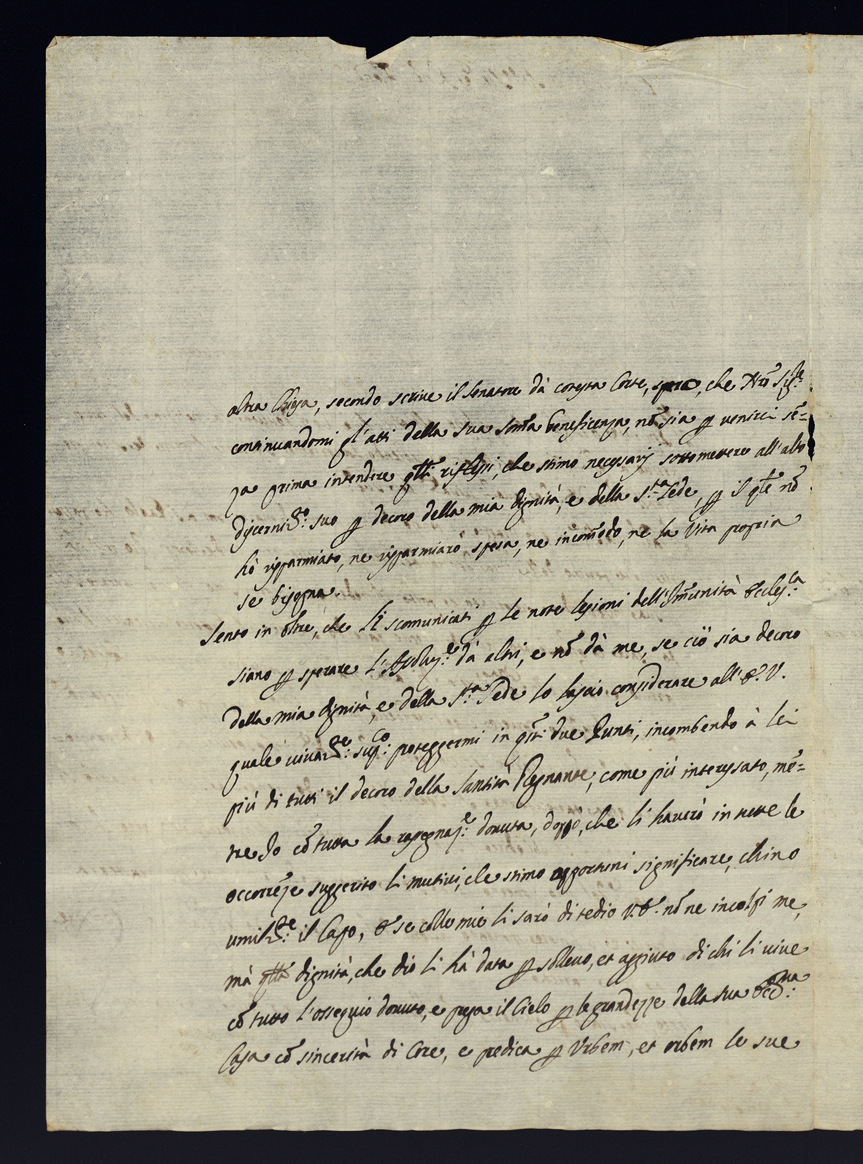 altra Chiesa, secondo scrive il Senatore dà cotesta Corte, spero, che Nro̅ Sig.re
continuandomi gl'atti della sua som̅a beneficenza, no̅ sia ꝑ venirci se̅=
za prima intendere q̅tti riflessi, che stimo necessarj sottomettere all'alto
discernim.to suo ꝑ decoro della mia dignità, e della S.ta Sede, ꝑ il q̅le no̅
hò risparmiato, ne risparmiarò spesa, ne incom̅odo, ne la Vita propria
se bisogna.
Sento in oltre, che li scomunicati ꝑ le note lesioni dell'Im̅unità Eccles.ca
siano ꝑ sperare l'Assoluz.e dà altri, e no̅ dà me, se ciò sia decoro
della mia dignità, e della S.ta Sede lo lascio considerare all'E. V.
quale vivam.te sup.co proteggermi in q̅sti due Punti, incombendo à lei
più di tutti il decoro della Santità Regnante, come più interessato, me̅=
tre Io co̅ tutta la rassegnaz.e dovuta, doppo, che li haverò in tutte le
occorre̅ze suggerito li motivi, che stimo opportuni significare, chino
umilm.te il Capo, E se colle mie li sarò di tedio V.E. no̅ ne incolpi me,
mà q̅lla dignità, che dio li hà data ꝑ sollievo, et aggiuto di chi li vive
co̅ tutto l'ossequio dovuto, e prega il Cielo ꝑ le grandezze della sua Ecc.ma
Casa co̅ sincerità di Core, e predica ꝑ Urbem, et orbem le sue